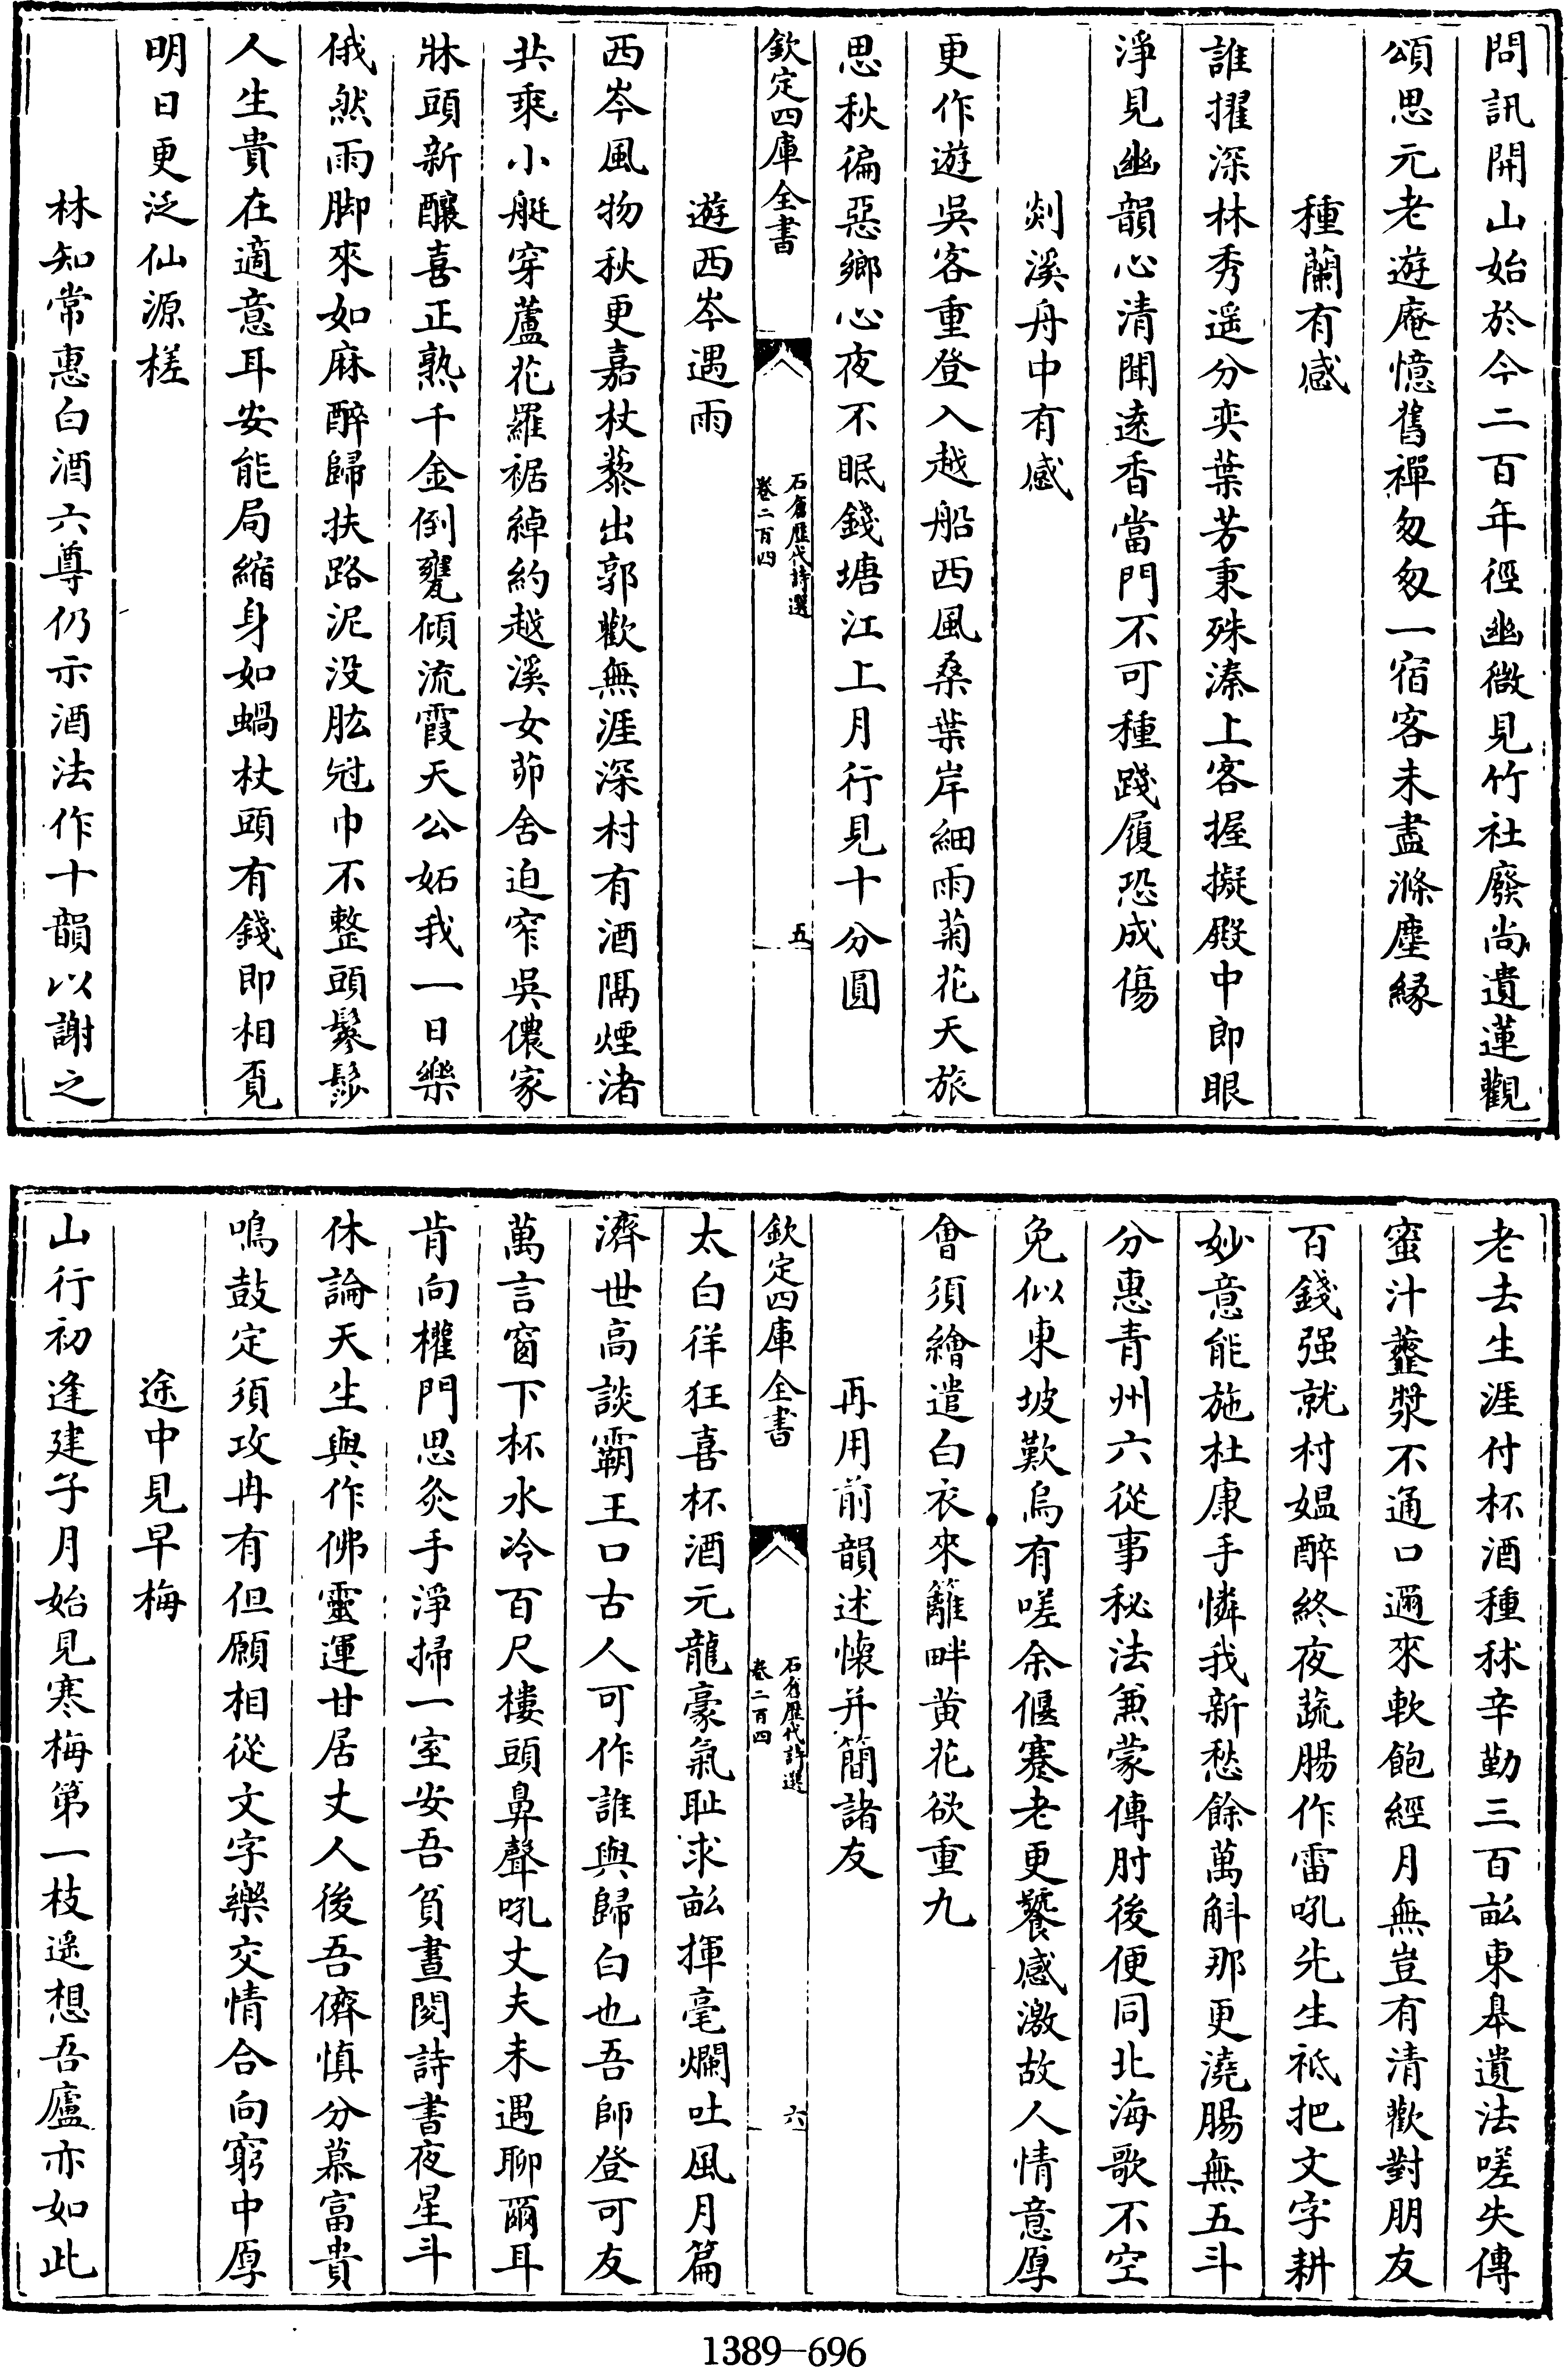 問訊開山始於今二百年徑幽微見竹社廢尚遺蓮觀
頌思元老遊庵憶舊禪匆匆一宿客未盡滌塵緣
種蘭有感
誰擢深林秀遥分奕葉芳秉殊溱上客握擬殿中郎眼
淨見幽韻心清聞逺香當門不可種踐履恐成傷
剡溪舟中有感
更作遊吳客重登入越船西風桑葉岸細雨菊花天旅
思秋徧惡鄉心夜不眠錢塘江上月行見十分圓
欽定四庫全書
石倉歴代詩選
卷二百四
五
遊西岑遇雨
西岑風物秋更嘉杖藜出郭歡無涯深村有酒隔煙渚
共乘小艇穿蘆花羅裾綽約越溪女茆舍迫窄吳儂家
牀頭新釀喜正熟千金倒甕傾流霞天公妬我一日樂
俄然雨脚來如麻醉歸扶路泥没肱冠巾不整頭鬖髿
人生貴在適意耳安能局縮身如蝸杖頭有錢即相覓
明日更泛仙源槎
林知常惠白酒六尊仍示酒法作十韻以謝之
老去生涯付杯酒種秫辛勤三百畝東臯遺法嗟失傳
蜜汁虀漿不通口邇來軟飽經月無豈有清歡對朋友
百錢强就村媼醉終夜蔬腸作雷吼先生祗把文字耕
妙意能施杜康手憐我新愁餘萬斛那更澆腸無五斗
分惠青州六從事秘法兼蒙傳肘後便同北海歌不空
免似東坡歎烏有嗟余偃蹇老更饕感激故人情意厚
會須繪遣白衣來籬畔黄花欲重九
再用前韻述懷并簡諸友
欽定四庫全書
石倉歴代詩選
卷二百四
六
太白徉狂喜杯酒元龍豪氣耻求畝揮毫爛吐風月篇
濟世高談霸王口古人可作誰與歸白也吾師登可友
萬言窗下杯水冷百尺樓頭鼻聲吼丈夫未遇聊爾耳
肯向權門思炙手淨掃一室安吾貧晝閱詩書夜星斗
休論天生與作佛靈運甘居丈人後吾儕慎分慕富貴
鳴鼓定須攻冉有但願相從文字樂交情合向窮中厚
途中見早梅
山行初逢建子月始見寒梅第一枝遥想吾廬亦如此
1389-696